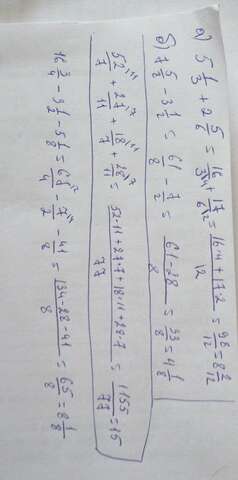 а) 5 1/3 + 2 5/6 = 16/3 ·4 + 17/6 ·2 = 16·4+17·2/12 = 98/12 = 8 2/12
б) 7 5/8 - 3 1/2 = 61/8 - 7/2 = 61-28/8 = 33/8 = 4 1/8
52/7 ·11 + 27/11 ·7 + 18/7 ·11 + 28/11 ·7 = 52·11+27·7+18·11+28·7/77 = 1155/77 = 15
16 3/4 - 3 1/2 - 5 1/8 = 67/4 - 7/2 - 41/8 = 134-28-41/8 = 65/8 = 8 1/8